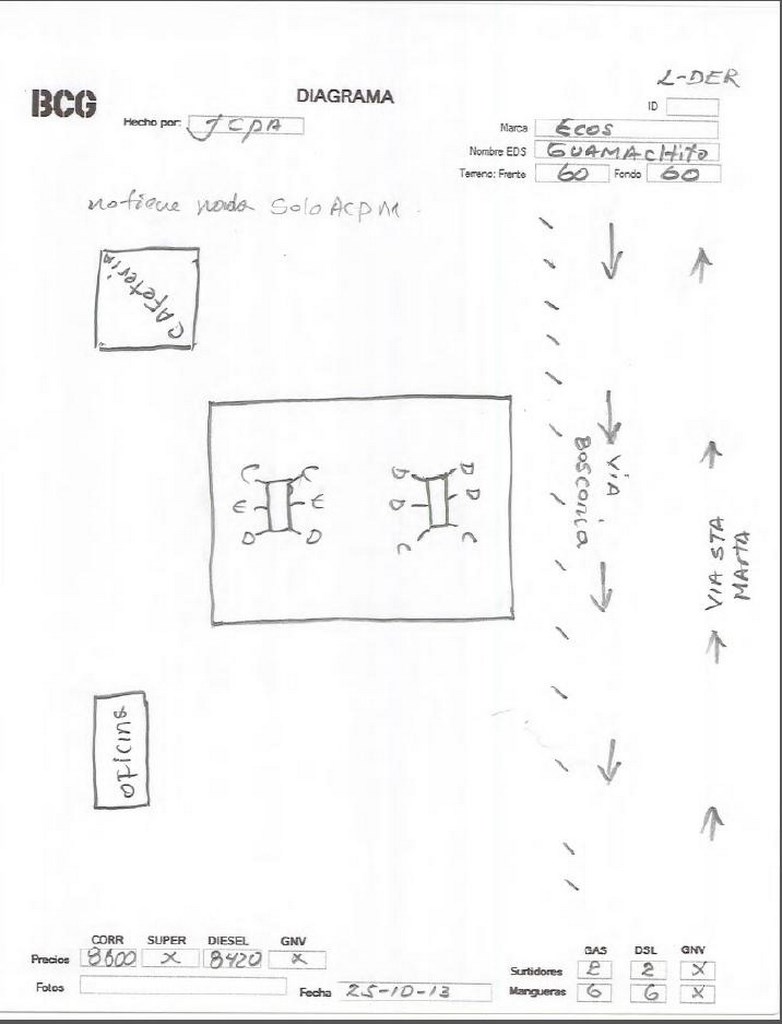 L-DER
BCG
DIAGRAMA
ID
Hecho por: JCPA
Marca Ecos
Nombre EDS GUAMACHITO
Terreno: Frente 60 Fondo 60
no tiene nada Solo ACPM.
CAFETERIA
VIA
BOSCONIA
C C D D
E E D D
D D C C
VIA STA
MARTA
OFICINA
CORR SUPER DIESEL GNV
Precios 8600 X 8420 X
Fotos
Fecha 25-10-13
GAS DSL GNV
Surtidores 2 2 X
Mangueras 6 6 X